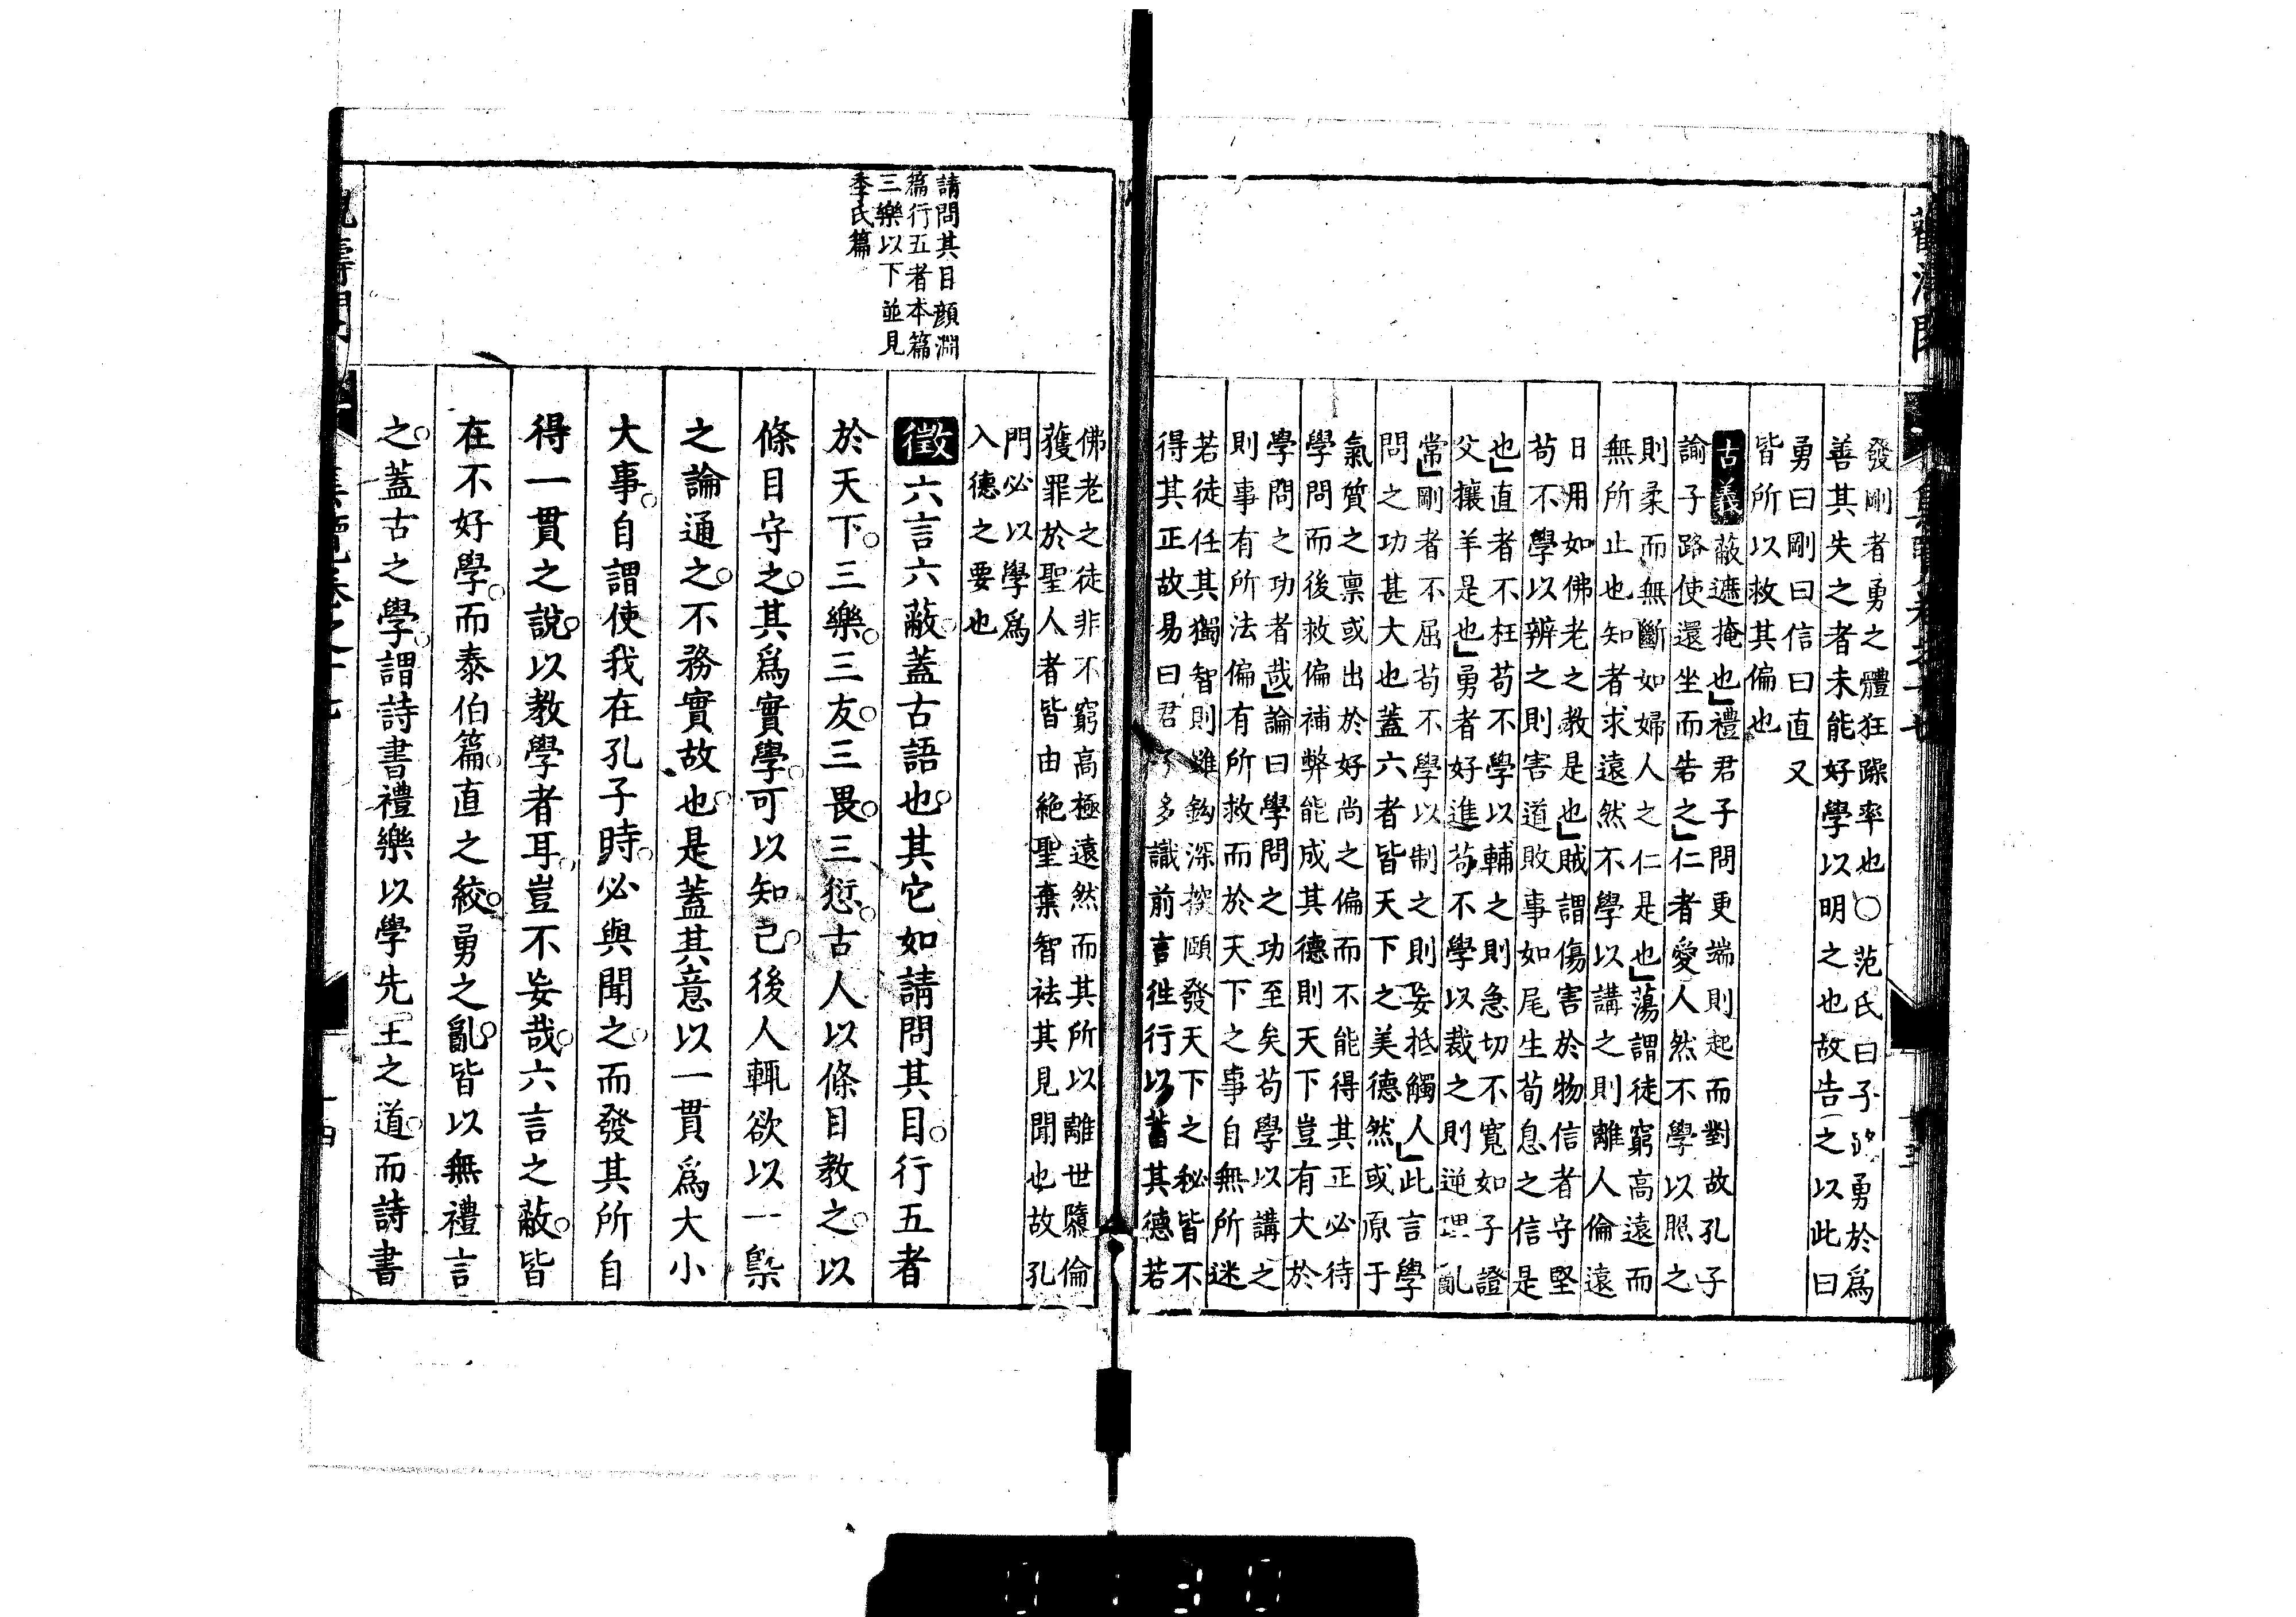 發剛者勇之體狂躁率也〇范氏曰子路勇於爲
善其失之者未能好學以明之也故告之以此曰
勇曰剛曰信曰直又
皆所以救其偏也
古義蔽遮掩也」禮君子問更端則起而對故孔子
諭子路使還坐而告之」仁者愛人然不學以照之
則柔而無斷如婦人之仁是也」蕩謂徒窮高遠而
無所止也知者求遠然不學以講之則離人倫遠
日用如佛老之教是也」賊謂傷害於物信者守堅
苟不學以辨之則害道敗事如尾生荀息之信是
也」直者不枉苟不學以輔之則急切不寬如子證
父攘羊是也」勇者好進苟不學以裁之則逆理亂
常」剛者不屈苟不學以制之則妄抵觸人」此言學
問之功甚大也蓋六者皆天下之美德然或原于
氣質之禀或出於好尚之偏而不能得其正必待
學問而後救偏補弊能成其德則天下豈有大於
學問之功者哉」論曰學問之功至矣苟學以講之
則事有所法偏有所救而於天下之事自無所迷
若徒任其獨智則雖鈎深探頤發天下之秘皆不
得其正故易曰君子多識前言往行以蓄其德若
佛老之徒非不窮高極遠然而其所以離世隳倫
獲罪於聖人者皆由絶聖棄智祛其見聞也故孔
門必以學爲
入德之要也
請問其目顏淵
篇行五者本篇
三樂以下並見
季氏篇
徵六言六蔽蓋古語也其它如請問其目行五者
於天下三樂三友三畏三愆古人以條目教之以
條目守之其爲實學可以知已後人輒欲以一槩
之論通之不務實故也是蓋其意以一貫爲大小
大事自謂使我在孔子時必與聞之而發其所自
得一貫之說以教學者耳豈不妄哉六言之蔽皆
在不好學而泰伯篇直之絞勇之亂皆以無禮言
之蓋古之學謂詩書禮樂以學先王之道而詩書
0130